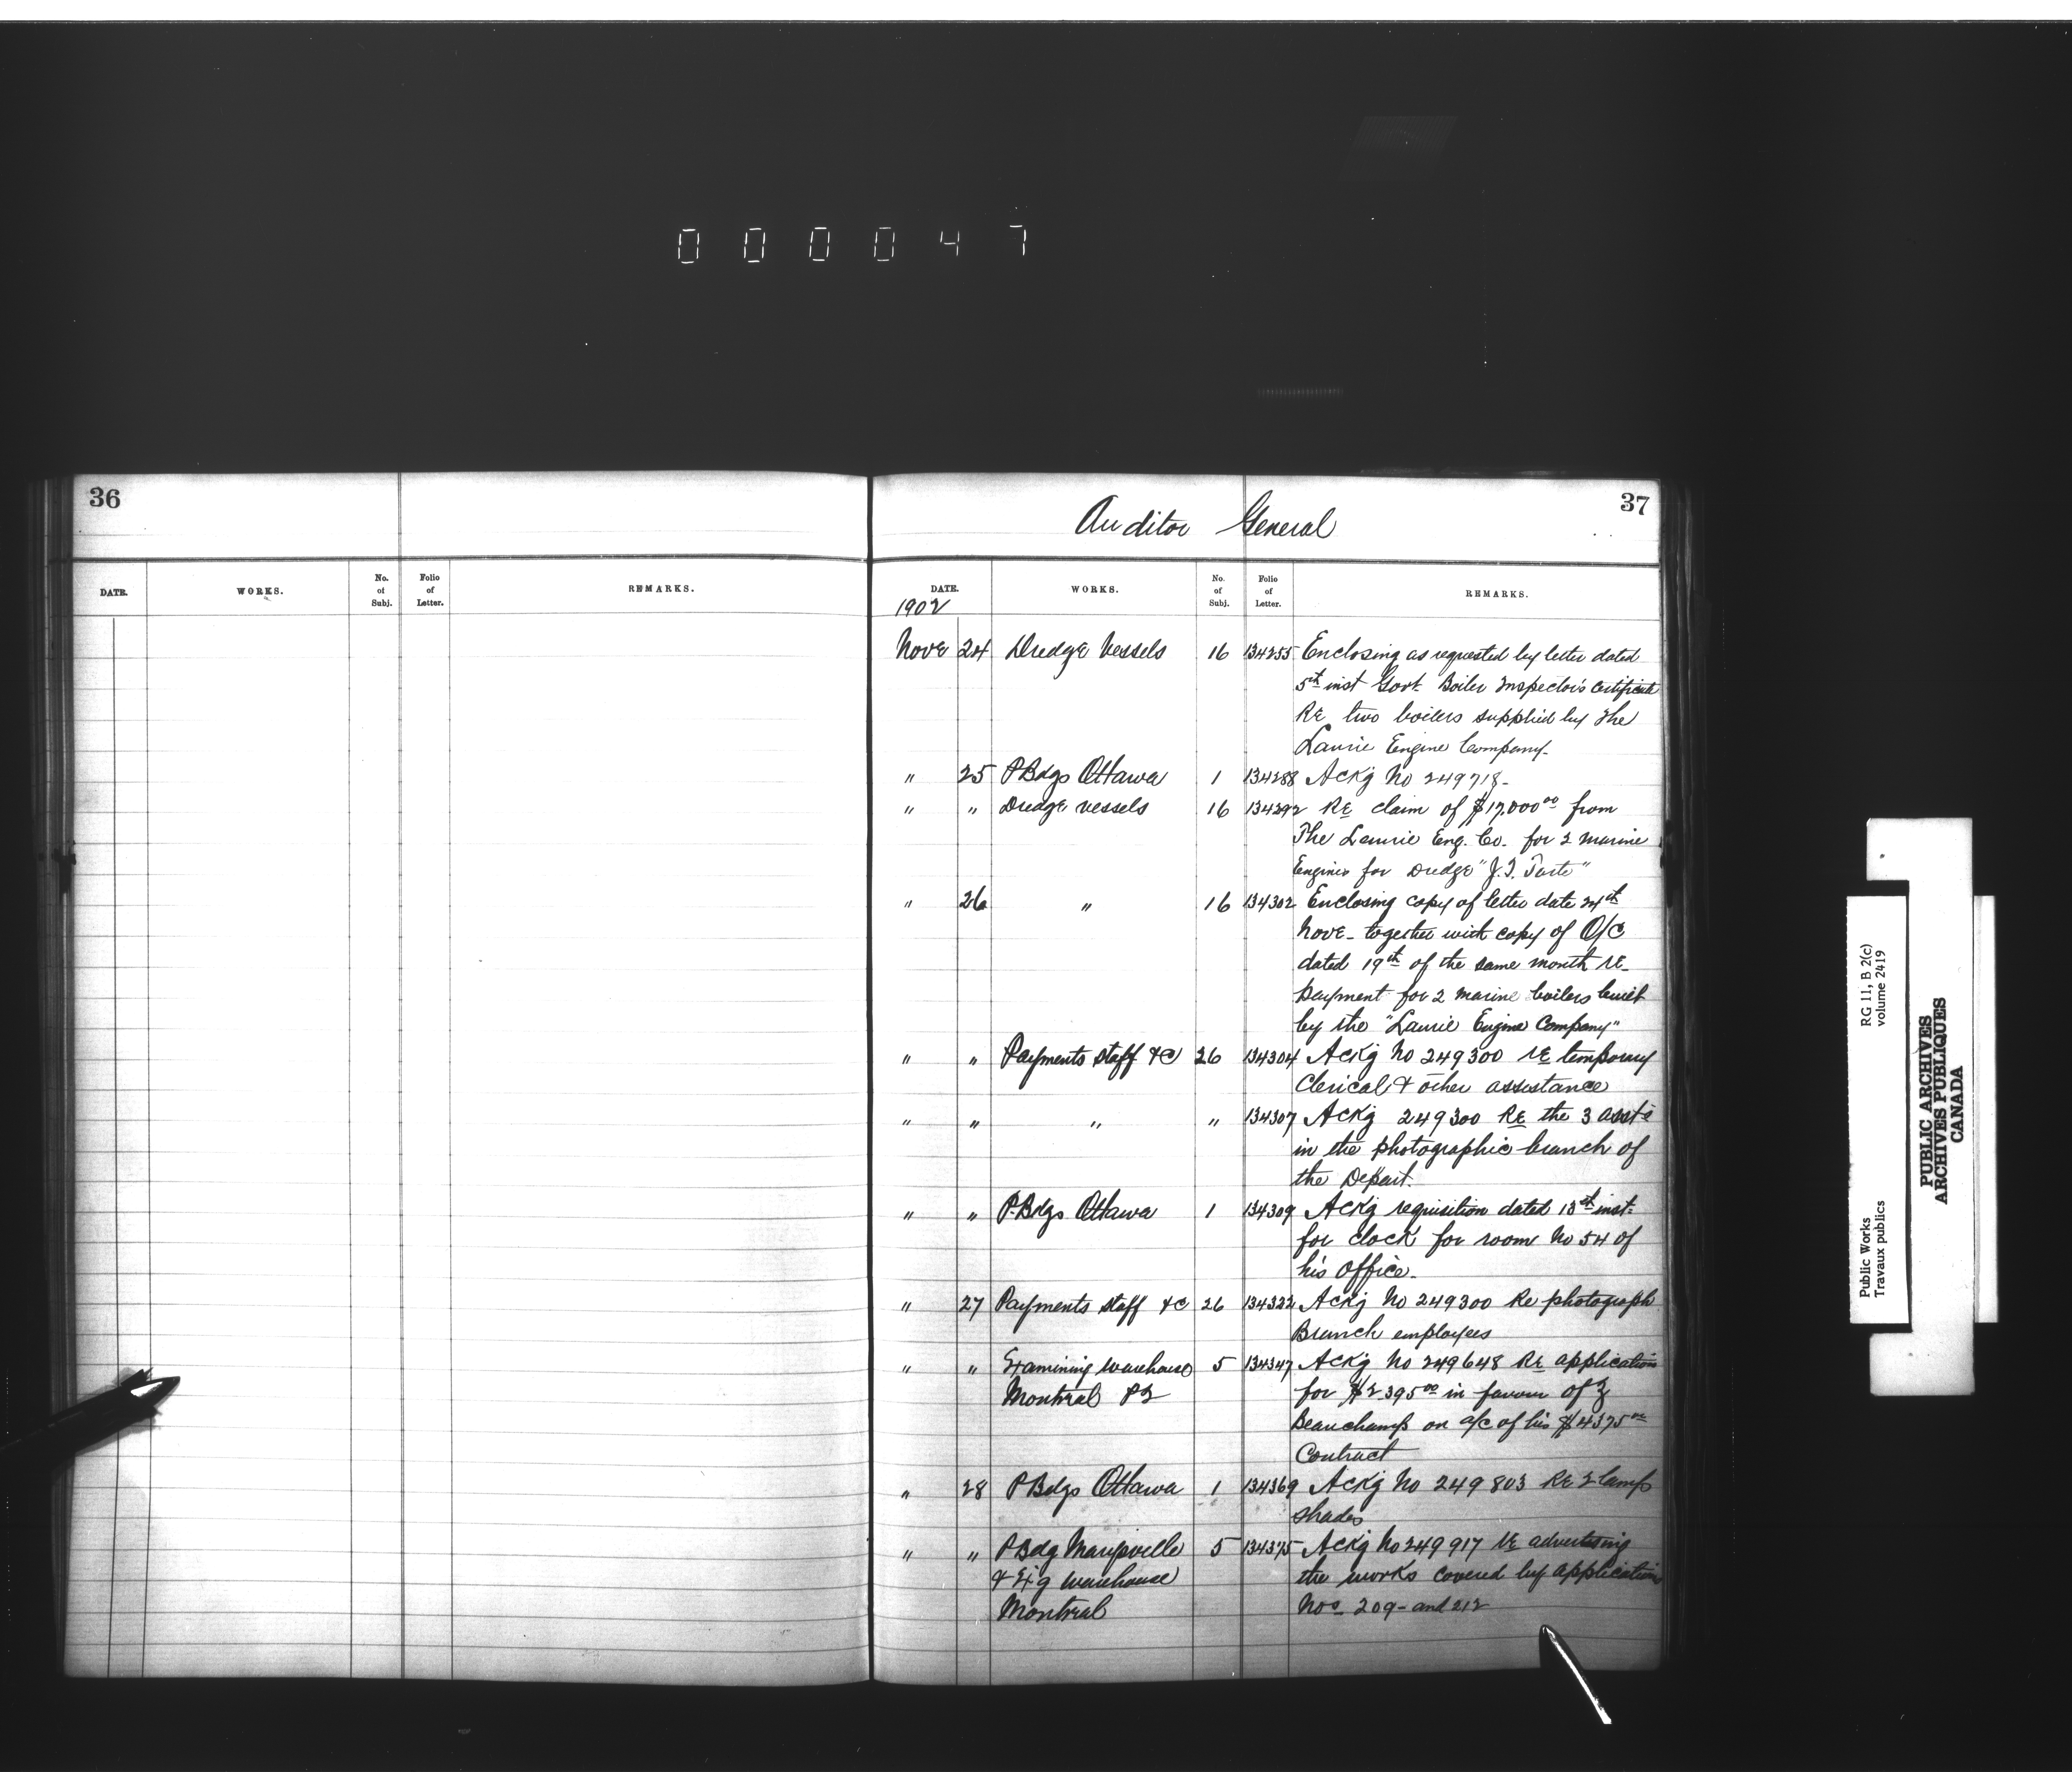 0 0 0 0 4 7
36
DATE. WORKS. No. of Subj. Folio of Letter. REMARKS.
37
Auditor General
DATE. WORKS. No. of Subj. Folio of Letter. REMARKS.
1902
Nove 24 Dredge Vessels 16 134255 Enclosing as requested by letter dated
5th inst Govt. Boiler Inspector's Certificate
RE two boilers supplied by The
Laurie Engine Company-
" 25 P Bdgs Ottawa 1 134288 Ackg No 249718-
" " Dredge vessels 16 134292 RE claim of $17,000 00 from
The Laurie Eng. Co. for 2 marine
Engines for Dredge "J. I. Tarte"
" 26 " 16 134302 Enclosing copy of letter date 24th
Nove- together with copy of O/C
dated 19th of the same month RE-
payment for 2 marine boilers built
by the "Laurie Engine Company"
" " Payments staff &c 26 134304 Ackg No 249300 RE temporary
Clerical & other assistance
" " " " 134307 Ackg 249300 RE the 3 assts
in the photographic branch of
the Depart.
" " P. Bdgs Ottawa 1 134309 Ackg requisition dated 13th inst.
for clock for room No 54 of
his office-
" 27 Payments staff &c 26 134322 Ackg No 249300 Re photograph
Branch employees
" " Examining warehouse 5 134347 Ackg No 249648 RE application
Montreal PQ for $2395 00 in favour of Z
Beauchamp on a/c of his $4375 00
Contract
" 28 P Bdgs Ottawa 1 134369 Ackg No 249803 RE 2 lamp
shades
" " P Bdg Marysville 5 134375 Ackg No 249917 RE advertising
& Ex'g warehouse the works covered by application
Montreal Nos 209- and 212
RG 11, B 2(c)
volume 2419
Public Works
Travaux publics
PUBLIC ARCHIVES
ARCHIVES PUBLIQUES
CANADA